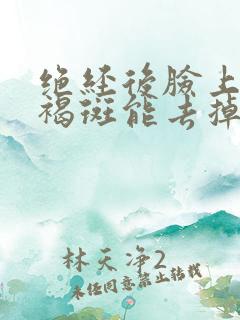 绝经後臉上
褐斑能去掉
林天净2
未经同意禁止转载